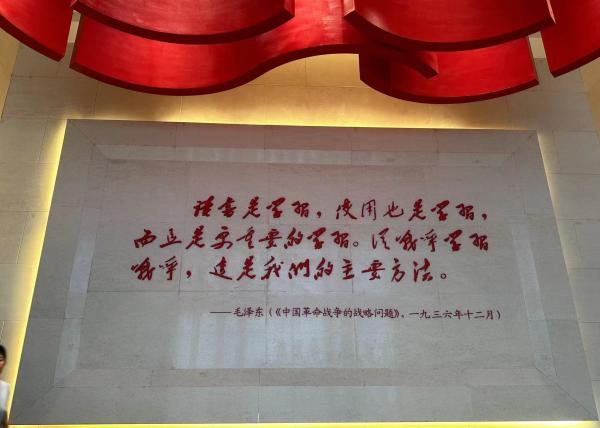 读书是学习，使用也是学习，
而且是更重要的学习。从战争学习
战争，这是我们的主要方法。
——毛泽东（《中国革命战争的战略问题》，一九三六年十二月）